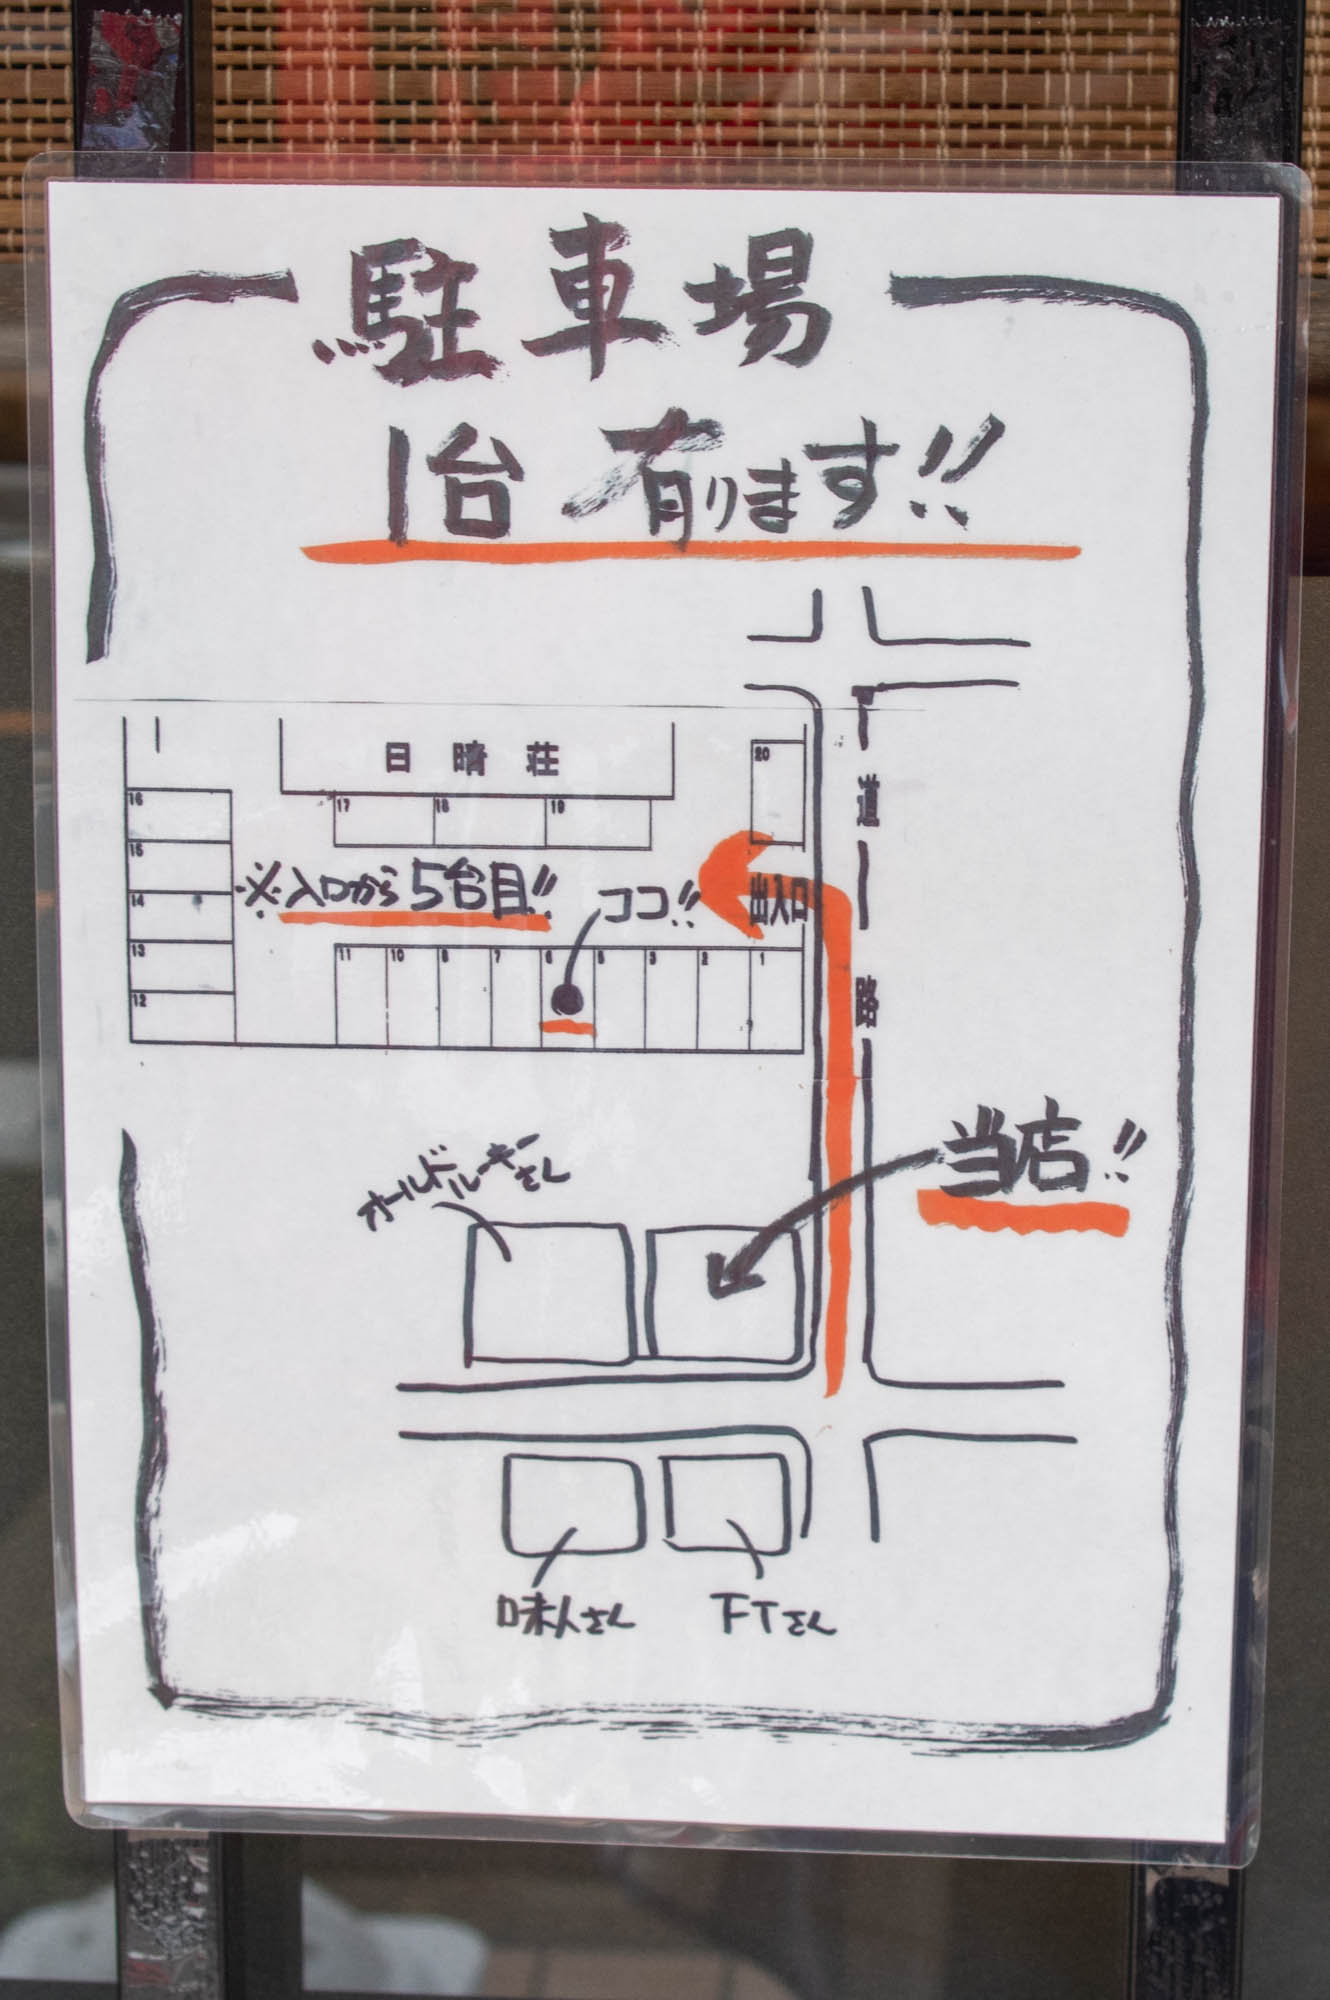 駐車場
1台 有ります!!
日晴荘
20
道路
16
17 18 19
15
14
※入口から5台目!! ココ!!
出入口
13
11 10 8 7 6 5 3 2 1
12
当店!!
オールドルーキーさん
味人さん
下Tさん